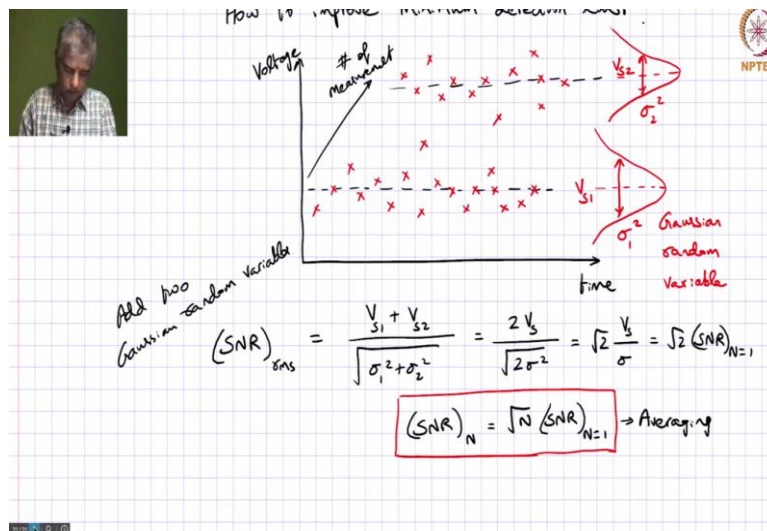 How to improve Minimum Detection Limit
NPTEL
Voltage
# of
measurement
V_S2
σ_2^2
V_S1
σ_1^2
Gaussian
random
variable
time
Add two
Gaussian random variable
(SNR)_rms = (V_S1 + V_S2) / √(σ_1^2 + σ_2^2) = 2 V_S / √(2σ^2) = √2 V_S / σ = √2 (SNR)_N=1
(SNR)_N = √N (SNR)_N=1 → Averaging